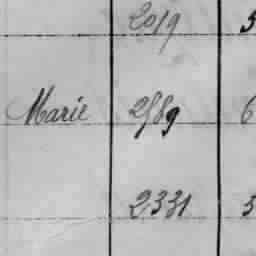 2019 5
Marie 2589 6
2331 5